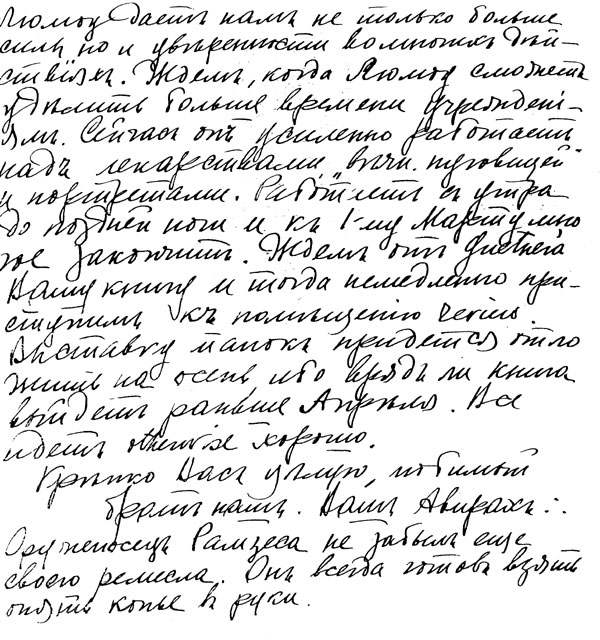 Люмоу даетъ намъ не только больше
силъ но и увѣренности во многихъ дѣй-
ствіяхъ. Ждемъ, когда Люмоу сможетъ
удѣлить больше времени учрежден-
ямъ. Сейчасъ онъ усиленно работаетъ
надъ лекарствами,
и портретами. Работаетъ съ утра
до поздней ночи и къ 1-му Марту мно
гое закончитъ. Ждемъ отъ
Вашу книгу и тогда немедленно при-
ступимъ къ помѣщенію
Выставку придется отло
жить на осень, ибо врядъ ли книга
выйдетъ раньше Апрѣля. Все
идетъ otherwise хорошо.
Крѣпко Васъ цѣлую, любимый
братъ нашъ. Вашъ Авирахъ
Оруженосецъ Рамзеса не забылъ еще
своего ремесла. Онъ всегда готовъ взять
опять копье въ руки.